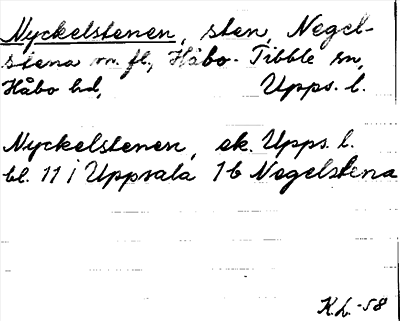 Nyckelstenen, sten, Negel-
stena m. fl., Håbo-Tibble sn,
Håbo hd, Upps. l.
Nyckelstenen, ek. Upps. l.
bl. 11 i Uppsala 1b Negelstena
K.L. -58